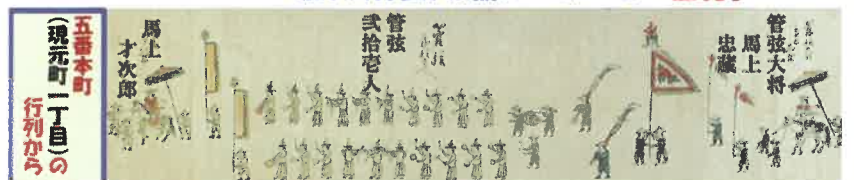 管弦大将
馬上
忠蔵
管弦
弐拾壱人
馬上
才次郎
五番本町
(現元町一丁目)の
行列から